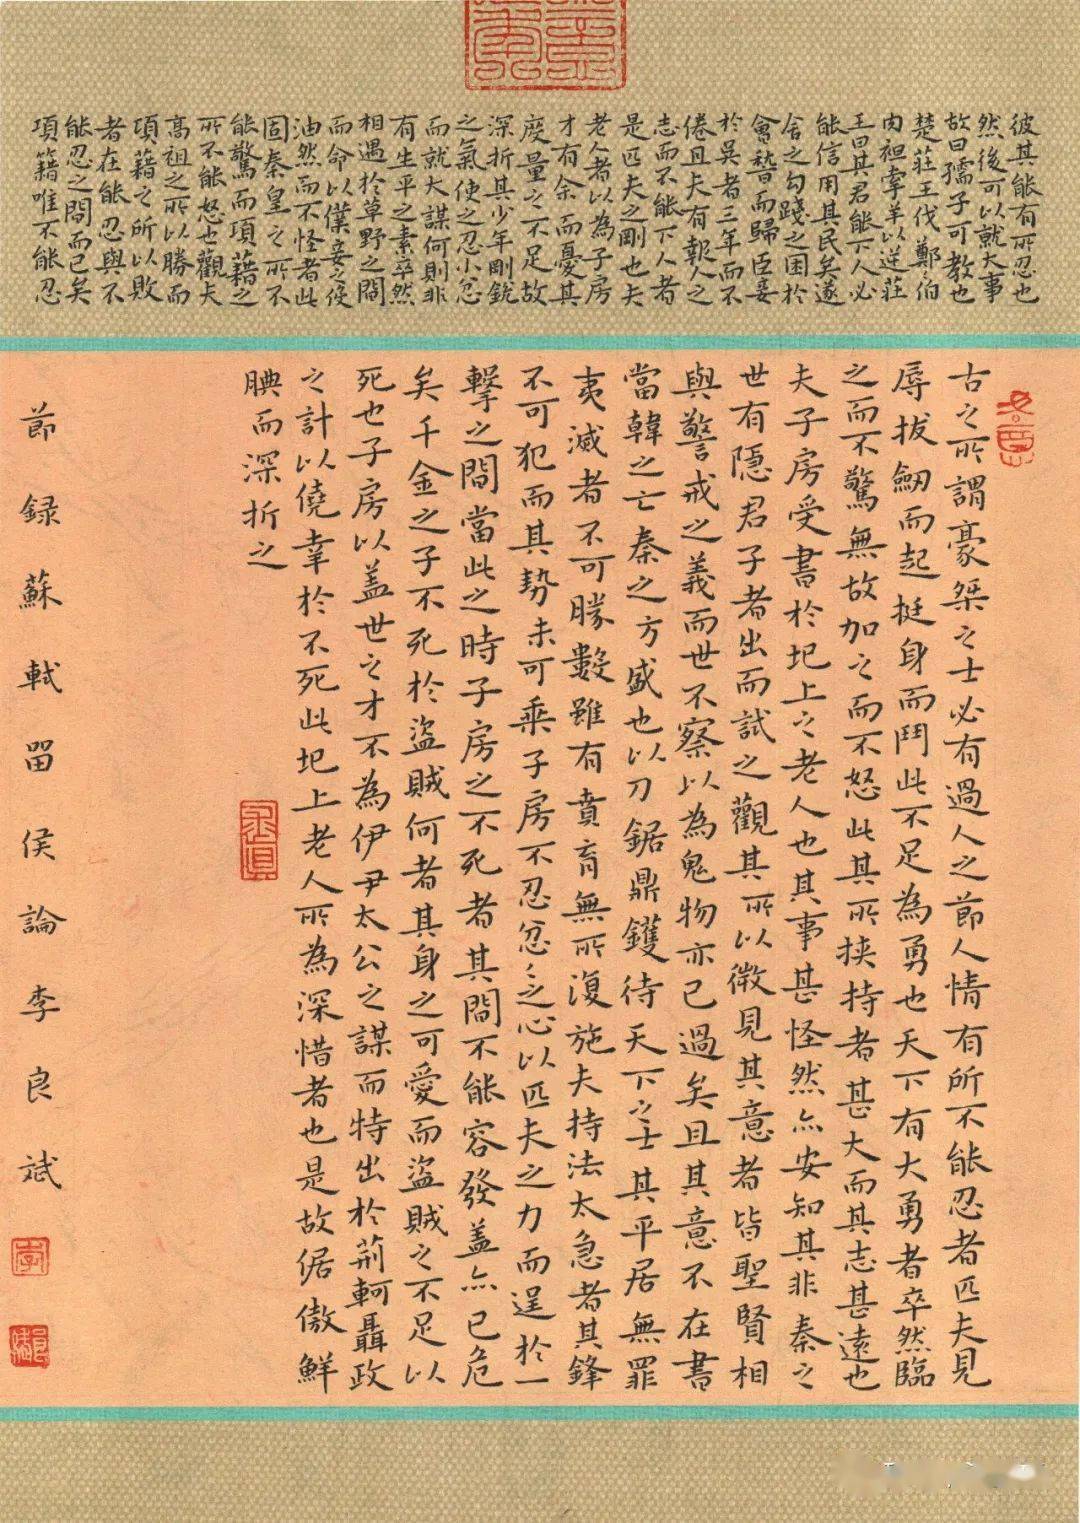 古之所謂豪桀之士必有過人之節人情有所不能忍者匹夫見
辱拔劒而起挺身而鬥此不足為勇也天下有大勇者卒然臨
之而不驚無故加之而不怒此其所挟持者甚大而其志甚遠也
夫子房受書於圯上之老人也其事甚怪然亦安知其非秦之
世有隱君子者出而試之觀其所以微見其意者皆聖賢相
與警戒之義而世不察以為鬼物亦已過矣且其意不在書
當韓之亡秦之方盛也以刀鋸鼎鑊待天下之士其平居無罪
夷滅者不可勝數雖有賁育無所復施夫持法太急者其鋒
不可犯而其勢未可乘子房不忍忿〻之心以匹夫之力而逞於一
擊之間當此之時子房之不死者其間不能容發盖亦已危
矣千金之子不死於盜賊何者其身之可愛而盜賊之不足以
死也子房以盖世之才不為伊尹太公之謀而特出於荊軻聶政
之計以僥幸於不死此圯上老人所為深惜者也是故倨傲鮮
腆而深折之
彼其能有所忍也
然後可以就大事
故曰孺子可教也
楚莊王伐鄭〻伯
肉袒牽羊以逆莊
王曰其君能下人必
能信用其民矣遂
舍之勾踐之困於
會稽而歸臣妾
於吳者三年而不
倦且夫有報人之
志而不能下人者
是匹夫之剛也夫
老人者以為子房
才有余而憂其
度量之不足故
深折其少年剛銳
之氣使之忍小忿
而就大謀何則非
有生平之素卒然
相遇於草野之間
而命以僕妾之役
油然而不怪者此
固秦皇之所不
能驚而項藉之
所不能怒也觀夫
高祖之所以勝而
項藉之所以敗
者在能忍與不
能忍之間而已矣
項籍唯不能忍
節録蘇軾留侯論李良斌